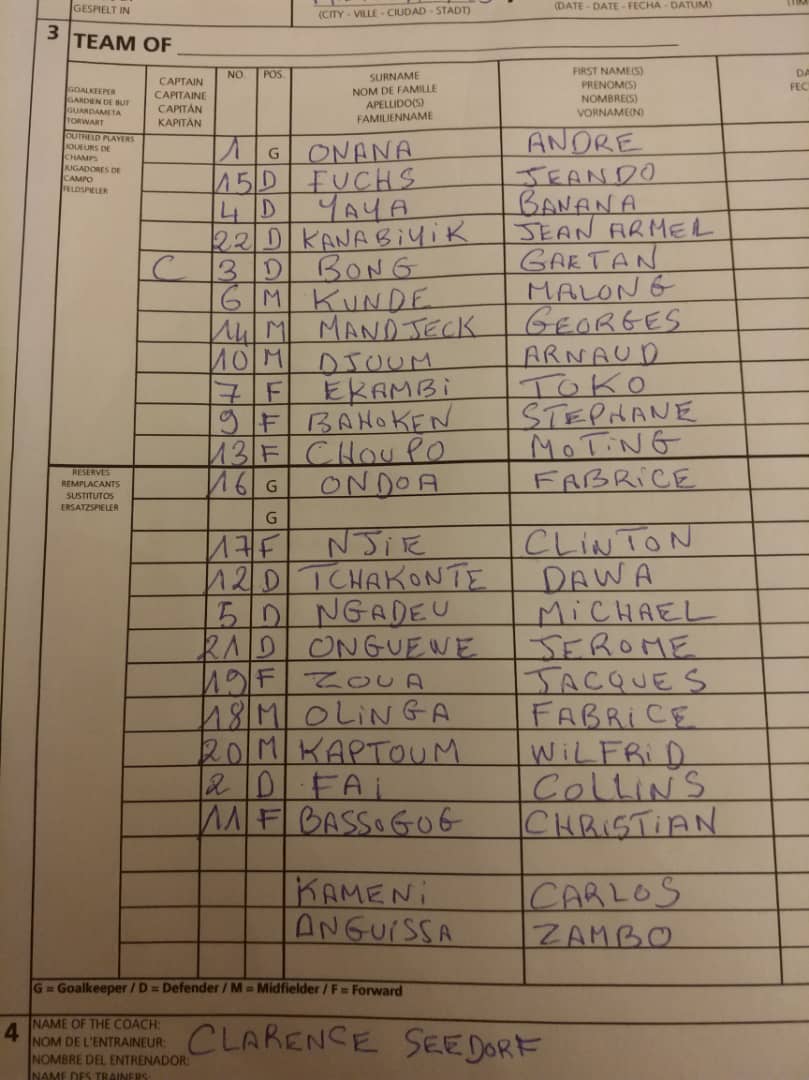 GESPIELT IN
(CITY - VILLE - CIUDAD - STADT)
(DATE - DATE - FECHA - DATUM)
3 TEAM OF
GOALKEEPER
GARDIEN DE BUT
GUARDAMETA
TORWART
CAPTAIN
CAPITAINE
CAPITÁN
KAPITÄN
NO.
POS.
SURNAME
NOM DE FAMILLE
APELLIDO(S)
FAMILIENNAME
FIRST NAME(S)
PRENOM(S)
NOMBRE(S)
VORNAME(N)
OUTFIELD PLAYERS
JOUEURS DE
CHAMPS
JUGADORES DE
CAMPO
FELDSPIELER
1 G ONANA ANDRE
15 D FUCHS JEANDO
4 D YAYA BANANA
22 D KANABIYIK JEAN ARMEL
C 3 D BONG GAETAN
6 M KUNDE MALONG
14 M MANDJECK GEORGES
10 M DJOUM ARNAUD
7 F EKAMBI TOKO
9 F BAHOKEN STEPHANE
13 F CHOUPO MOTING
RESERVES
REMPLACANTS
SUSTITUTOS
ERSATZSPIELER
16 G ONDOA FABRICE
G
17 F NJIE CLINTON
12 D TCHAKONTE DAWA
5 D NGADEU MICHAEL
21 D ONGUENE JEROME
19 F ZOUA JACQUES
18 M OLINGA FABRICE
20 M KAPTOUM WILFRID
2 D FAI COLLINS
11 F BASSOGOG CHRISTIAN
KAMENI CARLOS
ANGUISSA ZAMBO
G = Goalkeeper / D = Defender / M = Midfielder / F = Forward
4 NAME OF THE COACH:
NOM DE L'ENTRAINEUR: CLARENCE SEEDORF
NOMBRE DEL ENTRENADOR:
NAME DES TRAINERS: